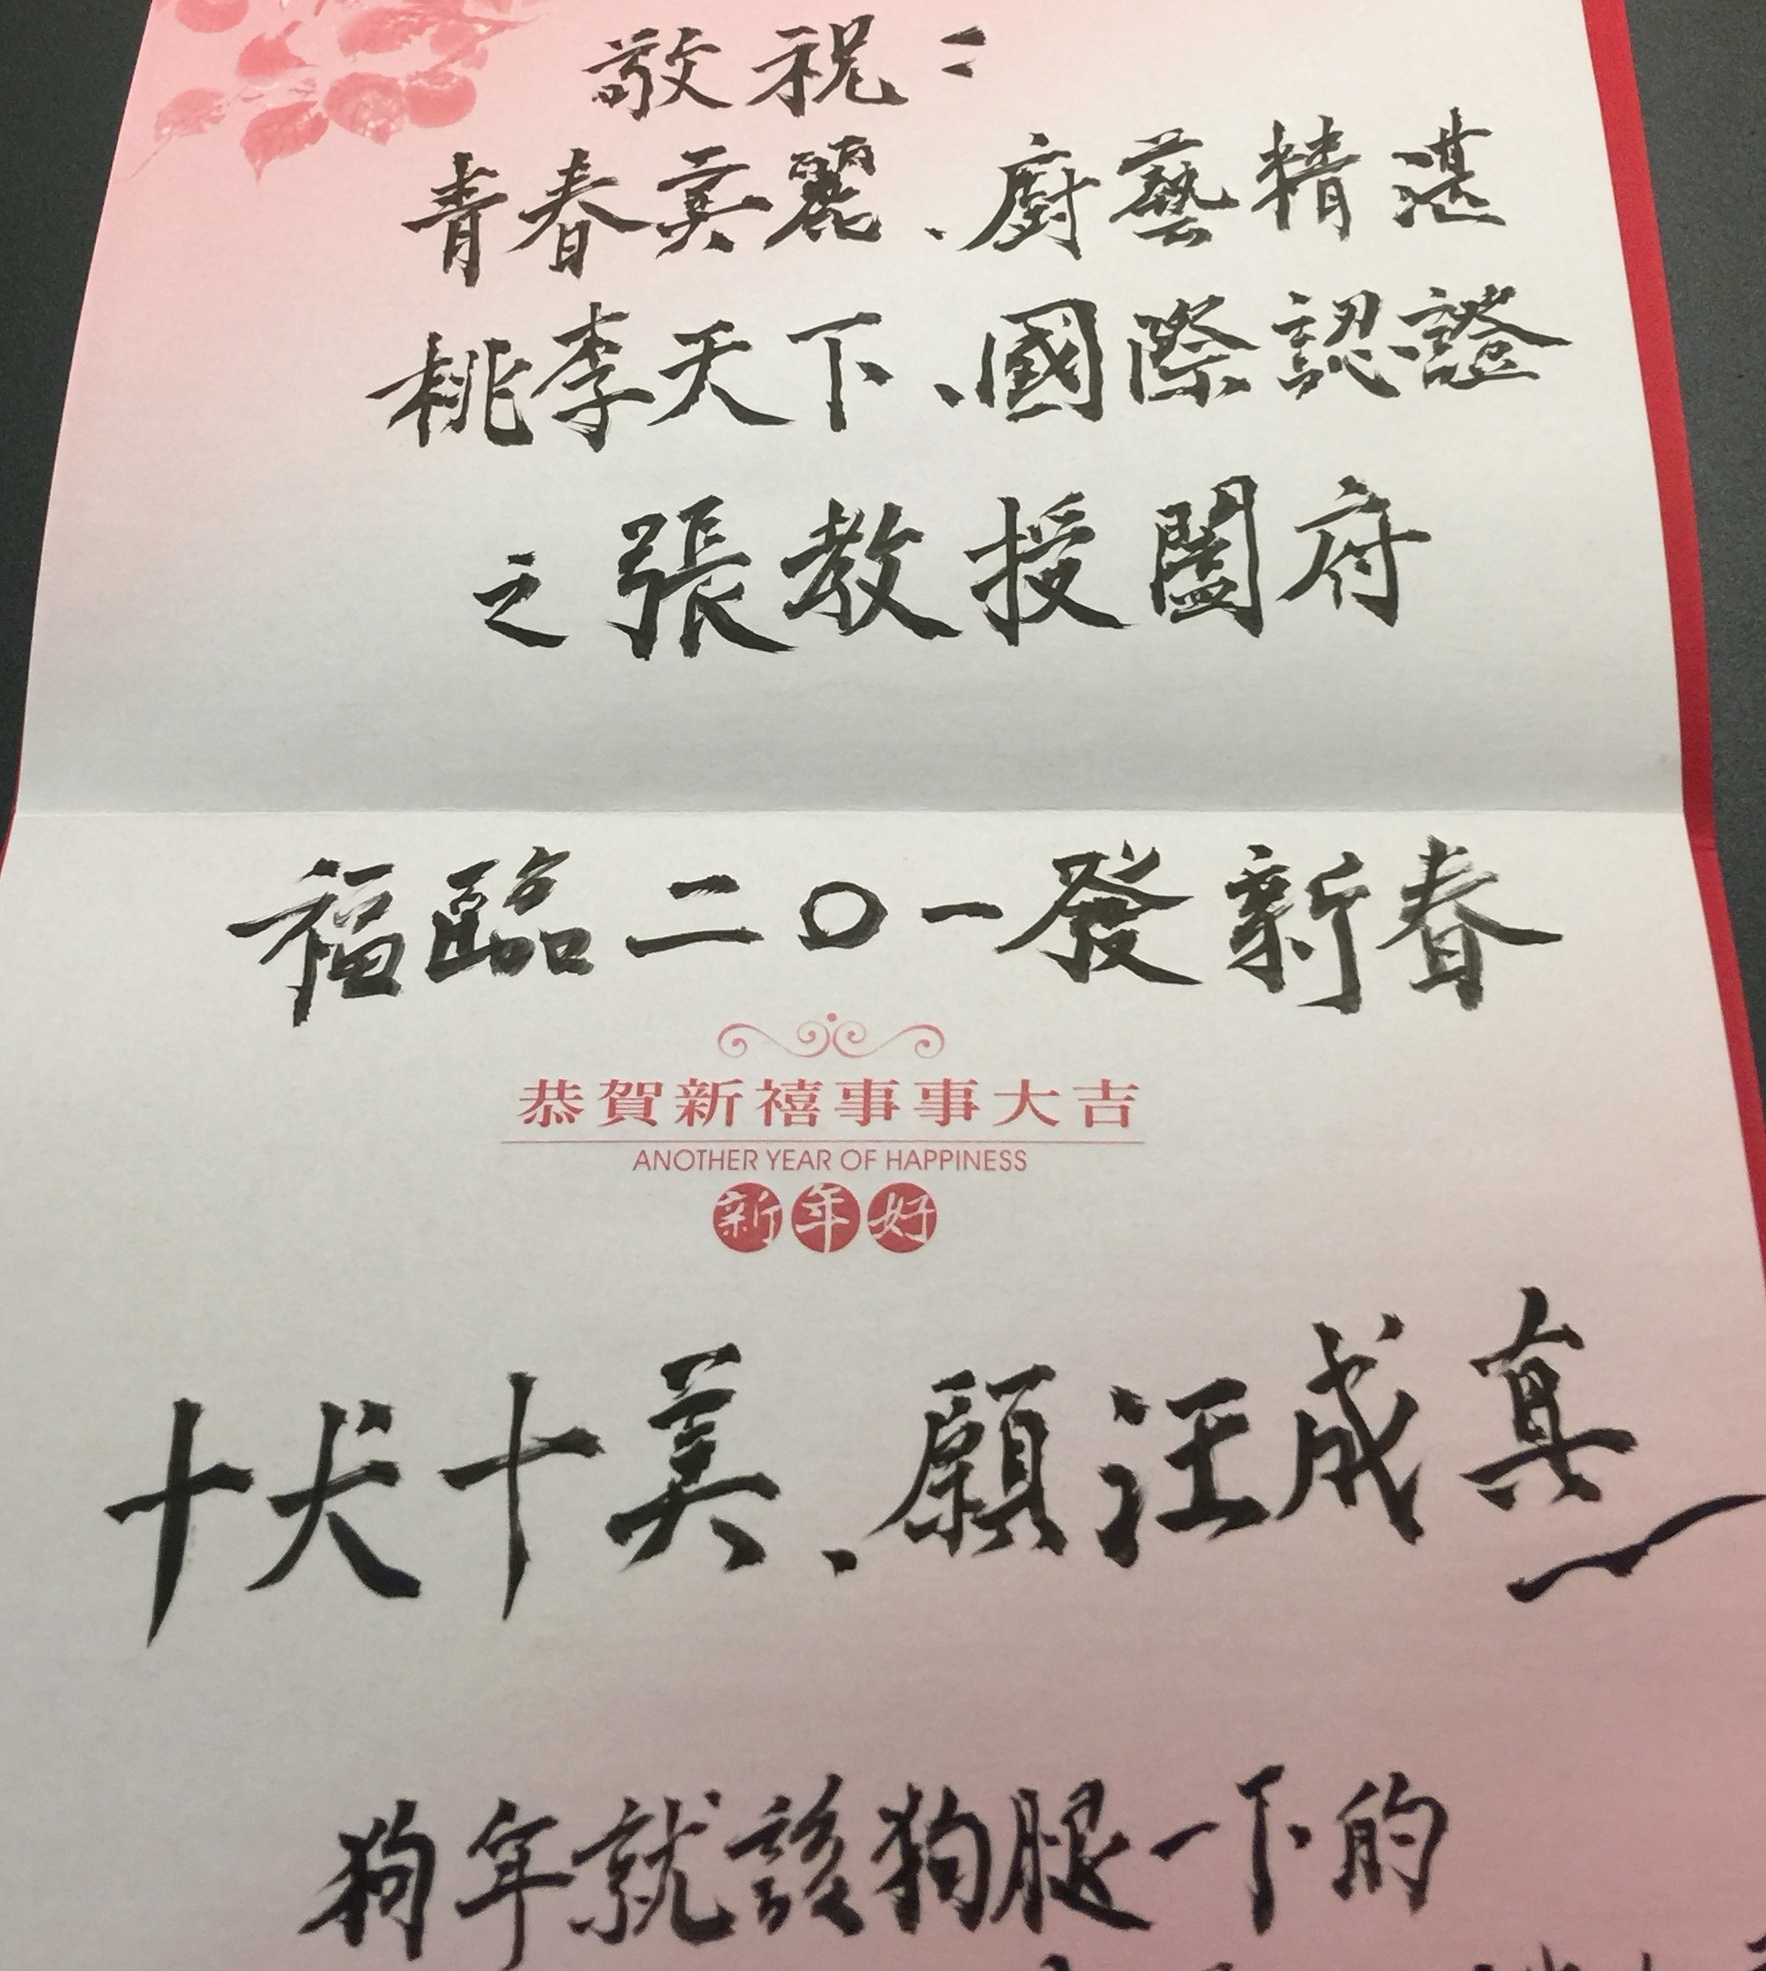 敬祝：
青春美麗、廚藝精湛
桃李天下、國際認證
之張教授闔府
福臨二〇一發新春
恭賀新禧事事大吉
ANOTHER YEAR OF HAPPINESS
新年好
十犬十美、願汪成真
狗年就該狗腿一下的